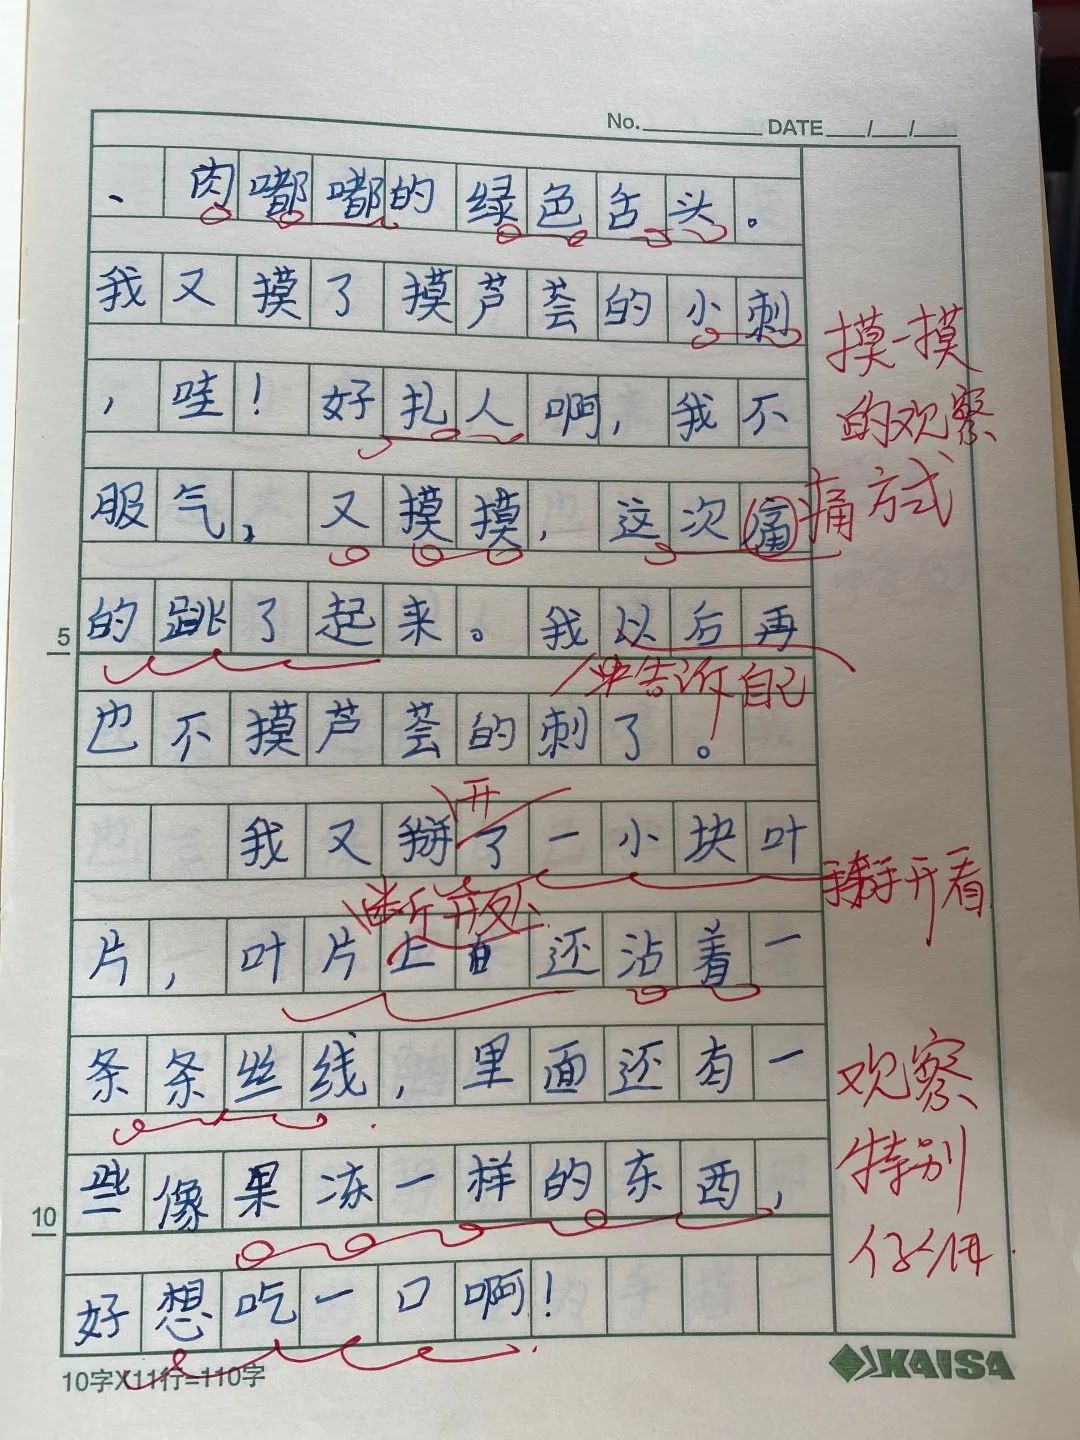 No. DATE / /
、肉嘟嘟的绿色舌头。
我又摸了摸芦荟的小刺
，哇！好扎人啊，我不
服气，又摸摸，这次痛
的跳了起来。我以后再
也不摸芦荟的刺了。
我又掰了一小块叶
片，叶片上面还沾着一
条条丝线，里面还有一
些像果冻一样的东西，
好想吃一口啊！
5
10
摸一摸
的观察
方式
痛
告诉自己
开
开看
观察
特别
仔细
10字X11行=110字
KAISA